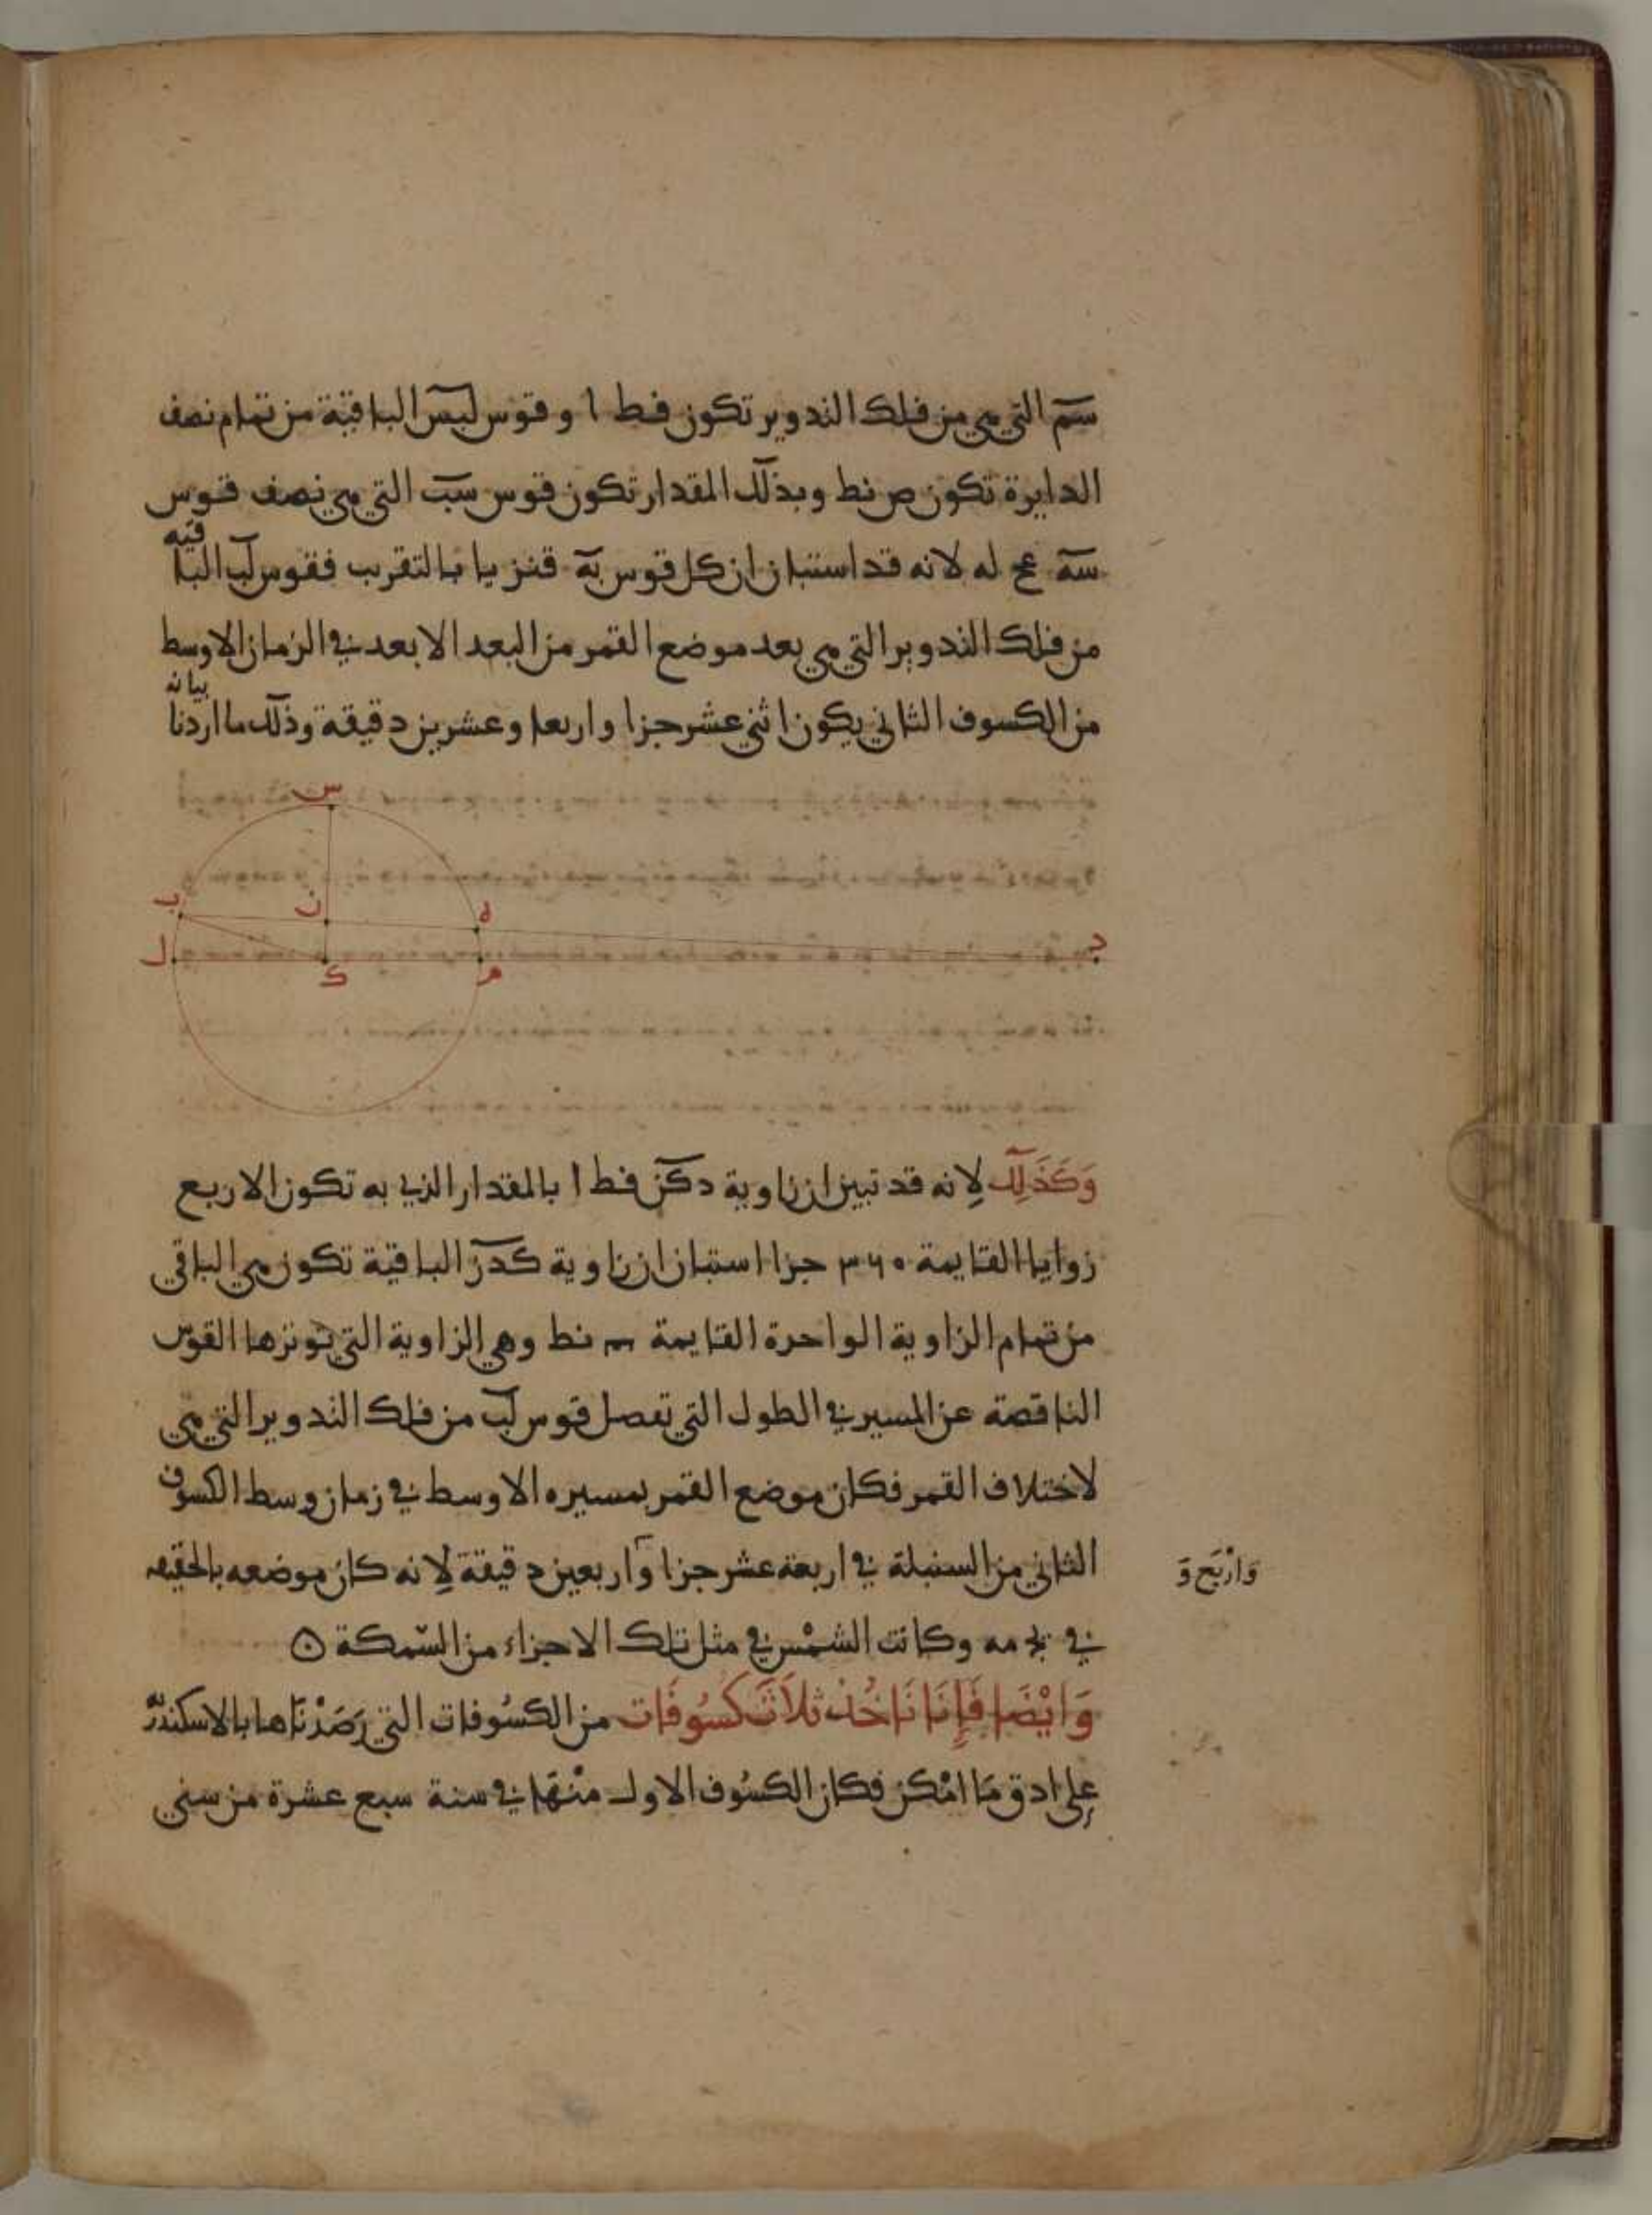 سم التي هي من فلك التدوير تكون فط ا وقوس لبس الباقية من تمام نصف
الدايرة تكون ص نط وبذلك المقدار تكون قوس سب التي هي نصف قوس
سه عح له لانه قد استبان ان كل قوس به قنز يا بالتقرب فقوس لب الباقية
من فلك التدوير التي هي بعد موضع القمر من البعد الابعد في الزمان الاوسط
من الكسوف الثاني يكون اثني عشر جزا واربعا وعشرين دقيقة وذلك ما اردنا بيانه
س
ب ن ه
د
ل ك م
وَكَذَلِك لِانه قد تبين ان زاوية دكن فط ا بالمقدار الذي به تكون الاربع
زوايا القايمة ٣٦٠ جزا استبان ان زاوية كدن الباقية تكون هي الباقي
من تمام الزاوية الواحدة القايمة نط وهي الزاوية التي توترها القوس
الناقصة عن المسير في الطول التي تفصل قوس لب من فلك التدوير التي هي
لاختلاف القمر فكان موضع القمر بمسيره الاوسط في زمان وسط الكسوف
الثاني من السنبلة في اربعة عشر جزا واربعين دقيقة لِانه كان موضعه بالحقيقه
وَارْبَع وَ
في يج مه وكانت الشمْس في مثل تلك الاجزاء من السّمكة
وَايْضَا فَإِنَا نَاخُذ ثَلاَثَ كسُوفَات من الكسُوفات التي رَصَدْنَاها بالاسكندرية
على ادق مَا امْكن فكان الكسُوف الاول منْهَا في سنة سبع عشرة من سني